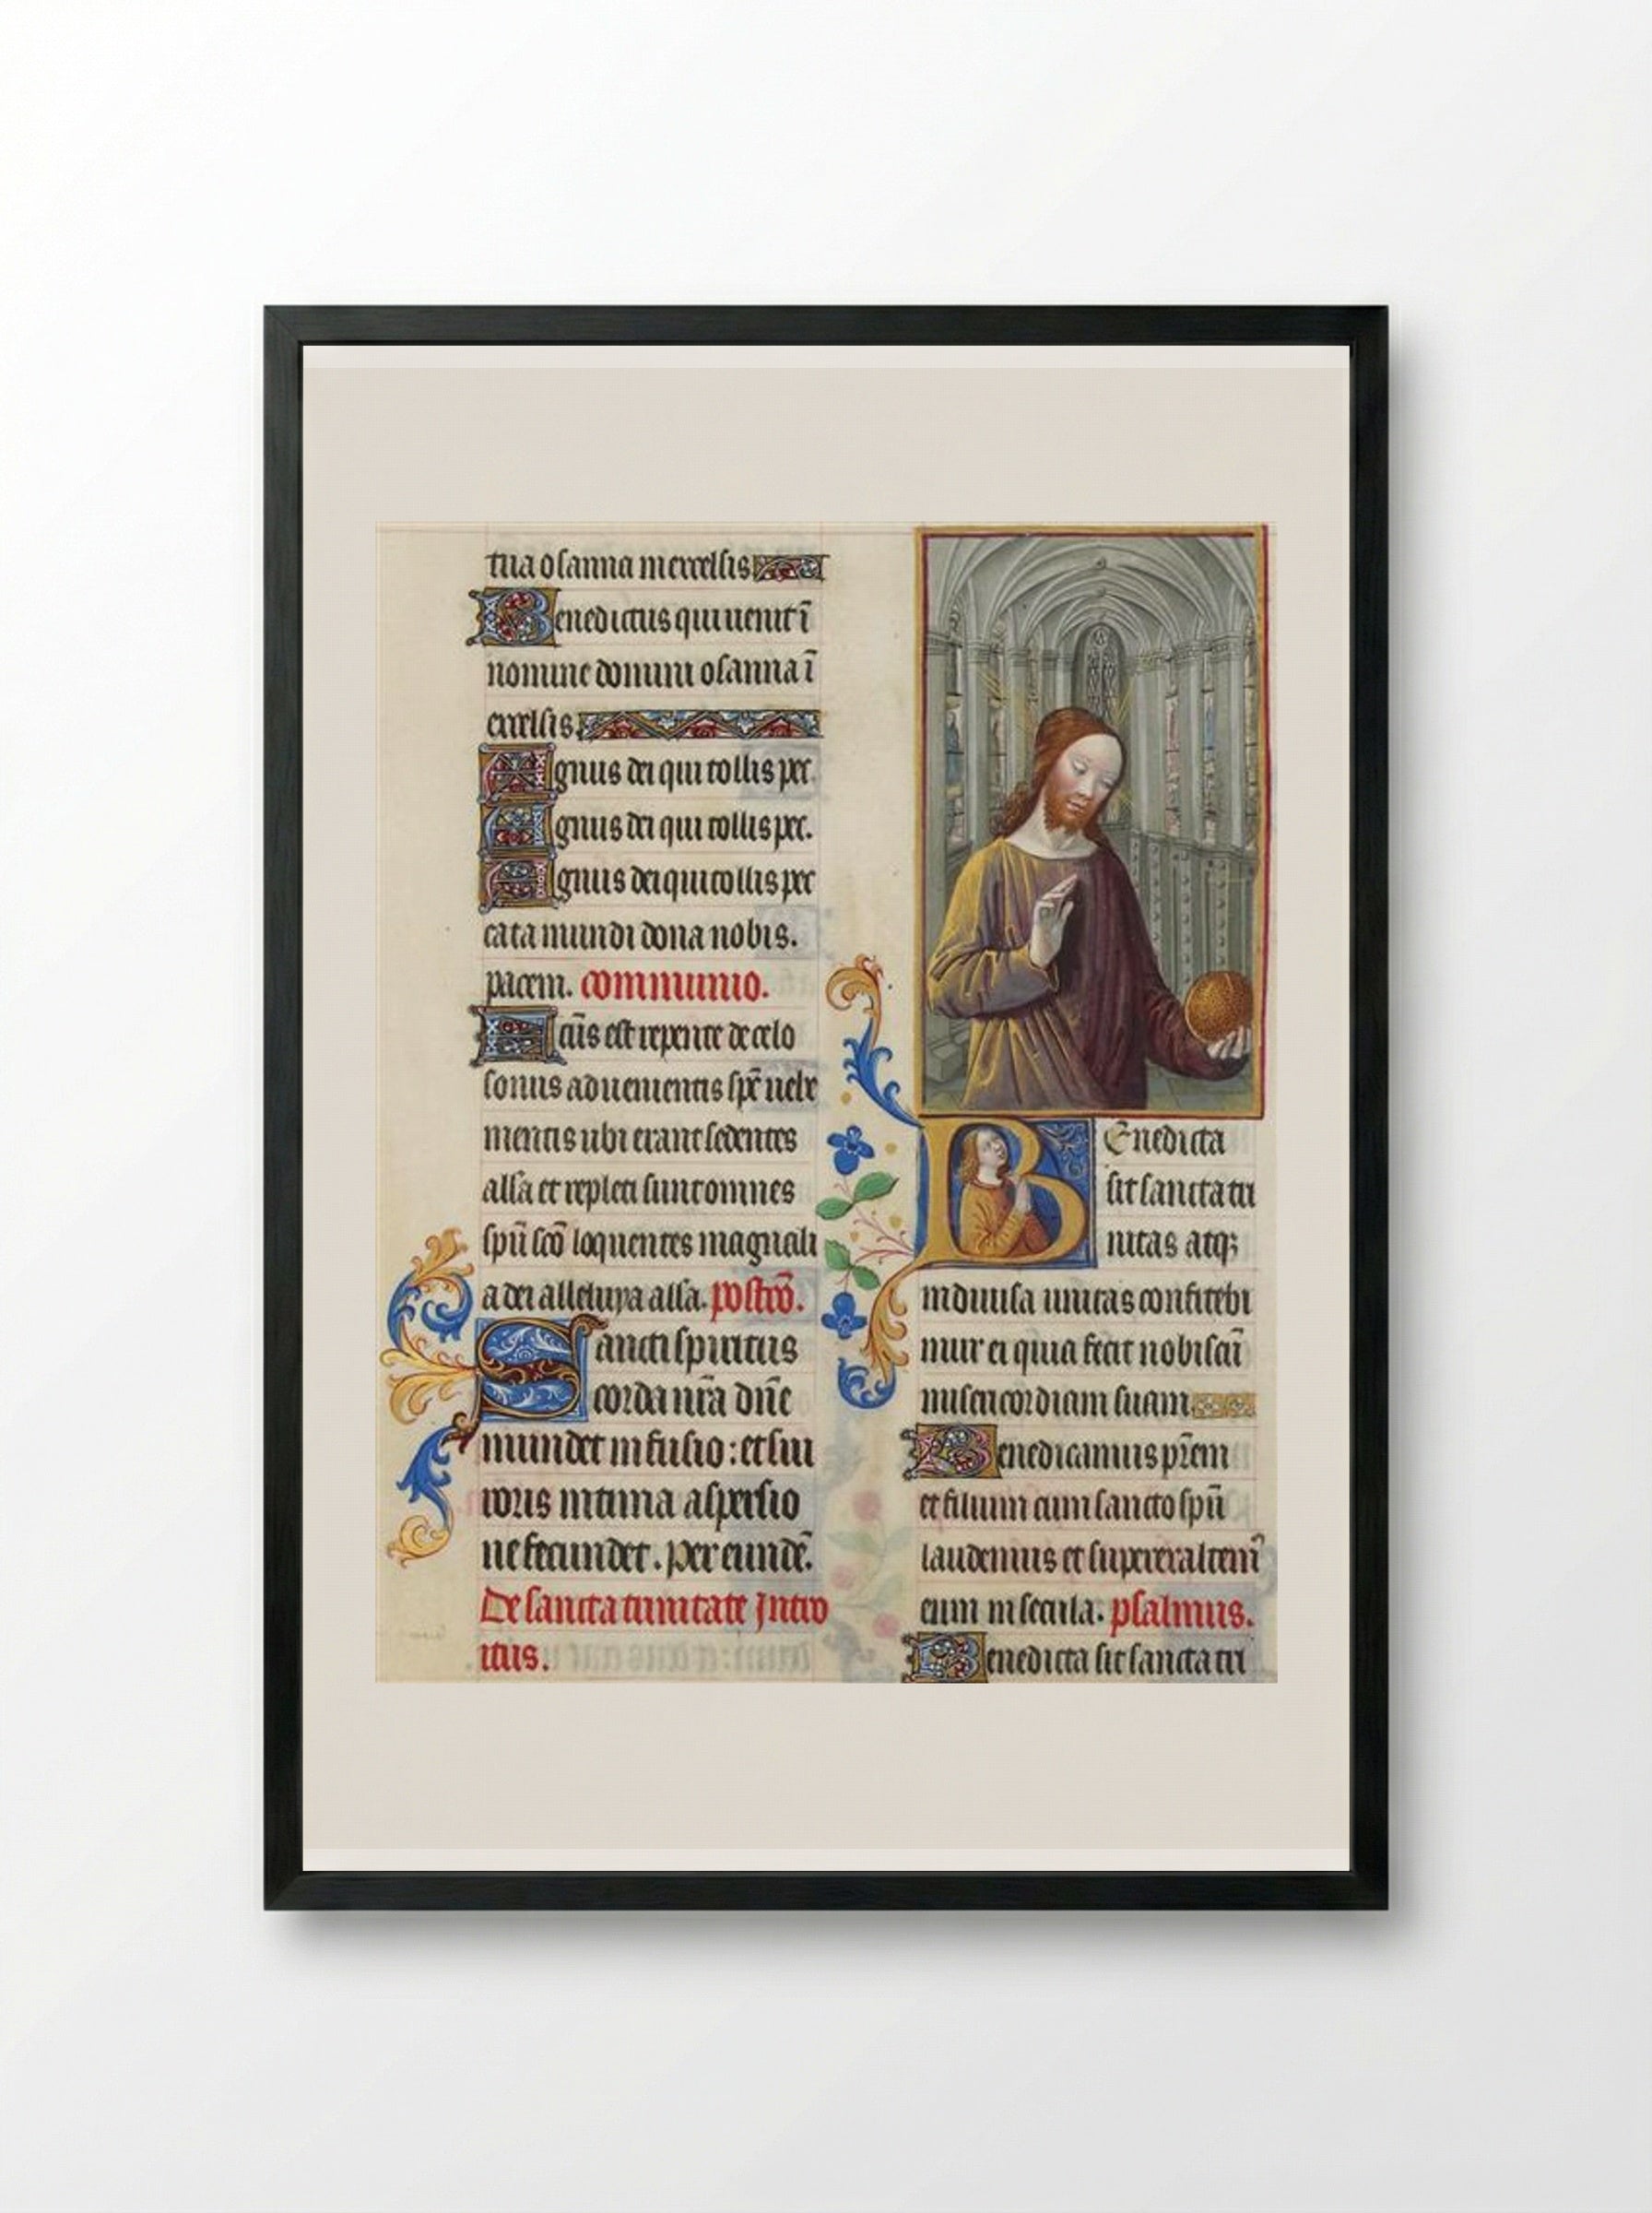 tua osanna in excelsis
Benedictus qui uenit ī
nomine domini osanna ī
excelsis.
Agnus dei qui tollis pec.
Agnus dei qui tollis pec.
Agnus dei qui tollis pec
cata mundi dona nobis.
pacem. communio.
Factꝰ est repente de celo
sonus aduenientis spē uehe
mentis ubi erant sedentes
alla et repleti sunt omnes
spū scō loquentes magnali
a dei alleluya alla. postcō.
Sancti spiritus
corda nr̄a dn̄e
mundet infusio: et sui
roris intima aspersio
ne fecundet. Per eundē.
De sancta trinitate Intro
itus.
Benedicta
sit sancta tri
nitas atqꝫ
indiuisa unitas confitebi
mur ei quia fecit nobiscū
misericordiam suam
Benedicamus pr̄em
et filium cum sancto spū
laudemus et superexaltem̄
eum in secula. psalmus.
Benedicta sit sancta tri